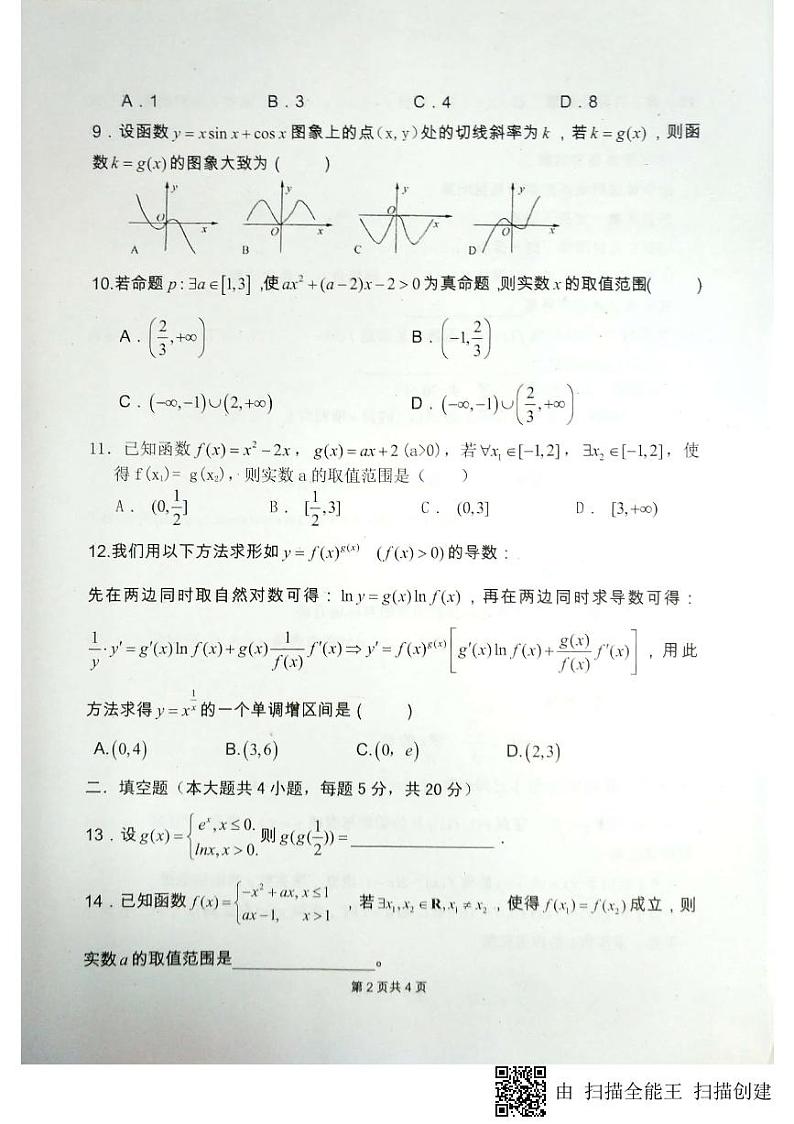 A．1 B．3 C．4 D．8
9．设函数 y = x sin x + cos x 图象上的点(x, y)处的切线斜率为 k ，若 k = g(x) ，则函
数 k = g(x) 的图象大致为（ ）
y y y y
O x O x O x O x
A B C D
10.若命题 p : ∃a ∈ [1,3] ,使 ax² + (a − 2)x − 2 > 0 为真命题 ,则实数 x 的取值范围( )
A．(2/3, +∞) B．(−1, 2/3)
C．(−∞, −1) ∪ (2, +∞) D．(−∞, −1) ∪ (2/3, +∞)
11．已知函数 f(x) = x² − 2x ， g(x) = ax + 2 (a>0)，若 ∀x₁ ∈ [−1,2] ， ∃x₂ ∈ [−1,2] ，使
得 f(x₁)= g(x₂)，则实数 a 的取值范围是（ ）
A． (0, 1/2] B． [1/2, 3] C． (0,3] D． [3, +∞)
12.我们用以下方法求形如 y = f(x)^{g(x)} (f(x) > 0) 的导数：
先在两边同时取自然对数可得：ln y = g(x) ln f(x) ，再在两边同时求导数可得：
1/y · y′ = g′(x) ln f(x) + g(x) 1/f(x) f′(x) ⇒ y′ = f(x)^{g(x)} [g′(x) ln f(x) + g(x)/f(x) f′(x)] ，用此
方法求得 y = x^{1/x} 的一个单调增区间是（ ）
A.(0,4) B.(3,6) C.(0，e) D.(2,3)
二．填空题（本大题共 4 小题，每题 5 分，共 20 分）
13．设 g(x) = { eˣ, x ≤ 0. lnx, x > 0. 则 g(g(1/2)) = ______ .
14．已知函数 f(x) = { −x² + ax, x ≤ 1 ax − 1, x > 1 ，若 ∃x₁, x₂ ∈ R, x₁ ≠ x₂ ，使得 f(x₁) = f(x₂) 成立，则
实数 a 的取值范围是______。
第 2 页共 4 页
由 扫描全能王 扫描创建